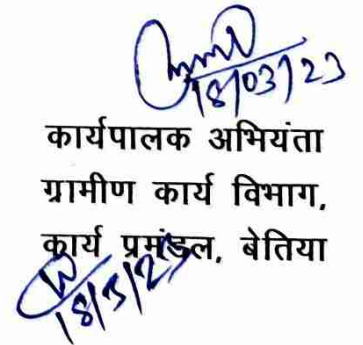 18/03/23
कार्यपालक अभियंता
ग्रामीण कार्य विभाग,
कार्य प्रमंडल, बेतिया
18/3/23